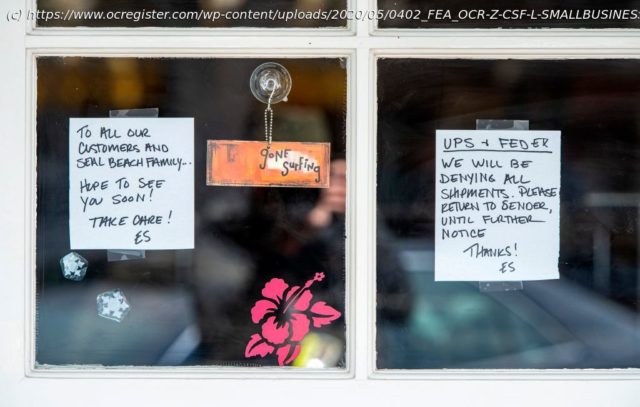 (c) https://www.ocregister.com/wp-content/uploads/2020/05/0402_FEA_OCR-Z-CSF-L-SMALLBUSINES
TO ALL OUR
CUSTOMERS AND
SEAL BEACH FAMILY...
HOPE TO SEE
YOU SOON!
TAKE CARE!
ES
gONE
Surfing
UPS + FEDEX
WE WILL BE
DENYING ALL
SHIPMENTS. PLEASE
RETURN TO SENDER,
UNTIL FURTHER
NOTICE
THANKS!
ES